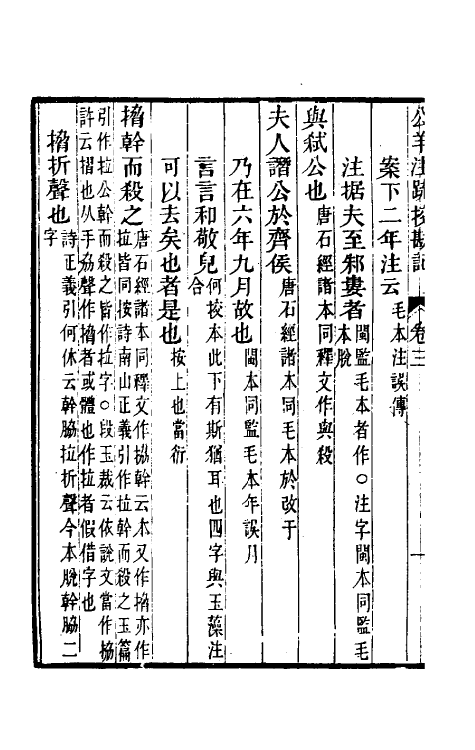 公羊注疏挍勘記 卷三 一
案下二年注云 毛本注誤傳
注据夫至邾婁者 閩監毛本者作○注字閩本同監毛
本脫
與弒公也 唐石經諸本同釋文作與殺
夫人譖公於齊侯 唐石經諸本同毛本於改于
乃在六年九月故也 閩本同監毛本年誤月
言言和敬皃 何挍本此下有斯猶耳也四字與玉藻注
合
可以去矣也者是也 按上也當衍
搚幹而殺之 唐石經諸本同釋文作拹幹云本又作搚亦作
拉皆同按詩南山正義引作拉幹而殺之玉篇
引作拉公幹而殺之皆作拉字○段玉裁云依說文當作拹
許云摺也从手劦聲作搚者或體也作拉者假借字也
搚折聲也 詩正義引何休云幹脇拉折聲今本脫幹脇二
字